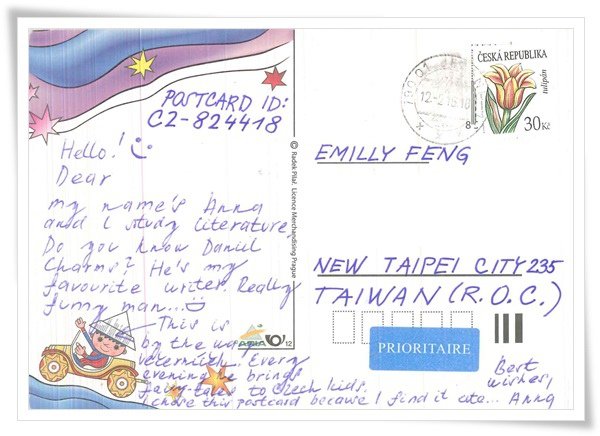 POSTCARD ID:
CZ-824418
Hello!
Dear
my name's Anna
and I study literature.
Do you know Daniel
Charms? He's my
favourite writer. Really
funny man...
This is
by the way
Večerníček. Every
evening he brings
fairy-tales to Czech kids.
I chose this postcard because I find it cute...
Best
wishes,
Anna
© Radek Pilař. Licence Merchandising Prague
12
ČESKÁ REPUBLIKA
tulipán
8
30 Kč
12.-2.15.10
EMILLY FENG
NEW TAIPEI CITY 235
TAIWAN (R.O.C.)
PRIORITAIRE